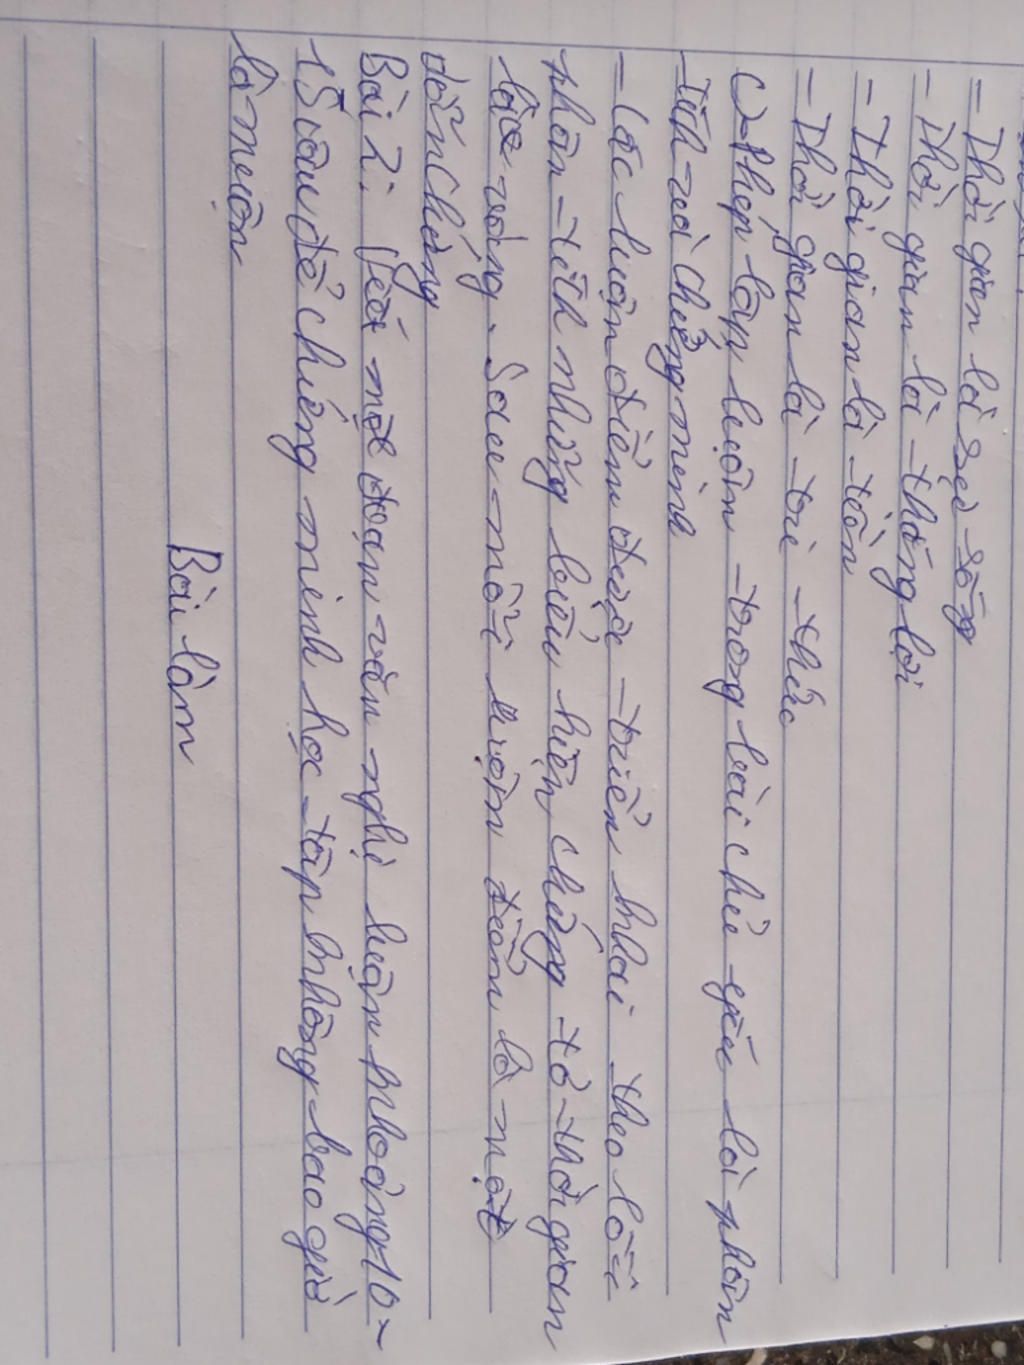 - Thời gian là sự sống
- Thời gian là thắng lợi
- Thời gian là tiền
- Thời gian là tri thức
c) Phép lập luận trong bài chủ yếu là phân
tích và chứng minh
- Các luận điểm được triển khai theo lối
phân tích những biểu hiện chứng tỏ thời gian
là vàng. Sau mỗi luận điểm là một
dẫn chứng
Bài 2: Viết một đoạn văn nghị luận khoảng 10-
15 câu để chứng minh học tập không bao giờ
là muộn
Bài làm